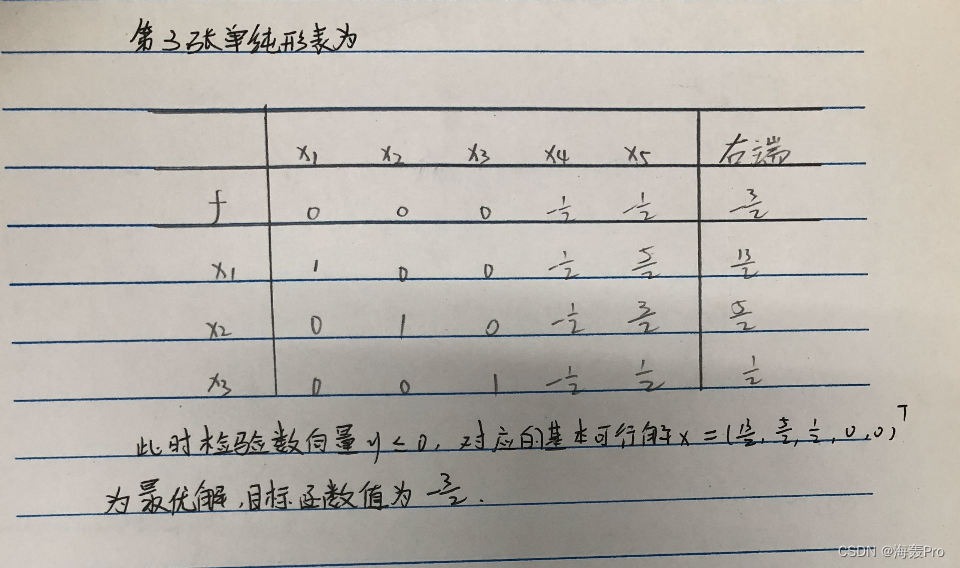 第3张单纯形表为
x1 x2 x3 x4 x5 右端
f 0 0 0 -1/2 -1/2 -3/2
x1 1 0 0 -1/2 5/2 13/2
x2 0 1 0 -1/2 3/2 5/2
x3 0 0 1 -1/2 1/2 1/2
此时检验数向量 y ≤ 0, 对应的基本可行解 x = (13/2, 5/2, 1/2, 0, 0)ᵀ
为最优解,目标函数值为 -3/2.
CSDN @海轰Pro